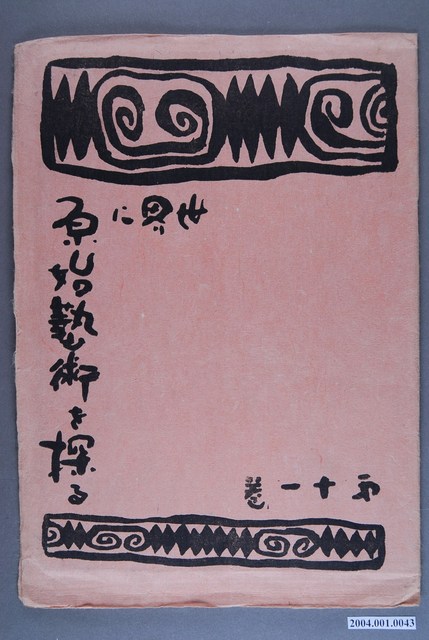 世界に
原始藝術を探る
第十一巻
2004.001.0043